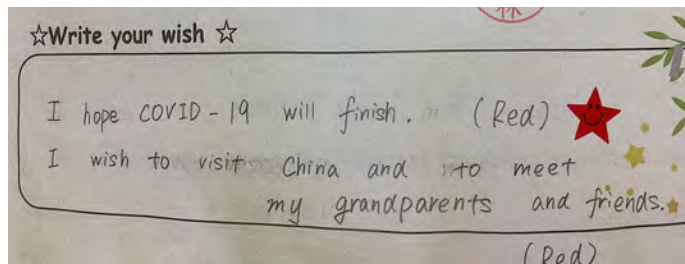 ☆Write your wish ☆
I hope COVID-19 will finish. (Red)
I wish to visit China and to meet
my grandparents and friends.
(Red)